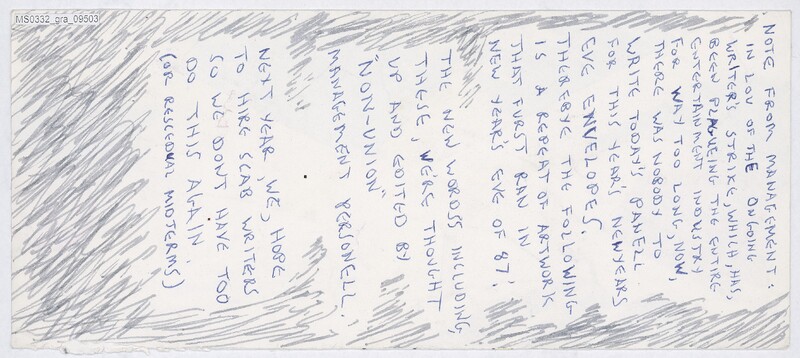 MS0332_gra_09503
NOTE FROM MANAGEMENT:
IN LOU OF THE ONGOING
WRITER'S STRIKE, WHICH, HAS,
BEEN PLAGUEING THE ENTIRE
ENTERTAINMENT INDUSTRY
FOR WAY TOO LONG, NOW,
THERE WAS NOBODY TO
WRITE TODAY'S PANELL
FOR THIS YEAR'S NEWYEARS
EVE ENVELOPES.
THEREFYE THE FOLLOWING
IS A REPEAT OF ARTWORK
THAT FURST RAN IN
NEW YEAR'S EVE OF 87!
THE NEW WORDSS INCLUDING,
THESE, WE'RE THOUGHT
UP AND EDITED BY
"NON-UNION"
MANAGEMENT PERSONELL.
NEXT YEAR, WE, HOPE
TO HIRE SCAB WRITERS
SO WE DONT HAVE TOO
DO THIS AGAIN.
(OR RESCEDUEL MIDTERMS)